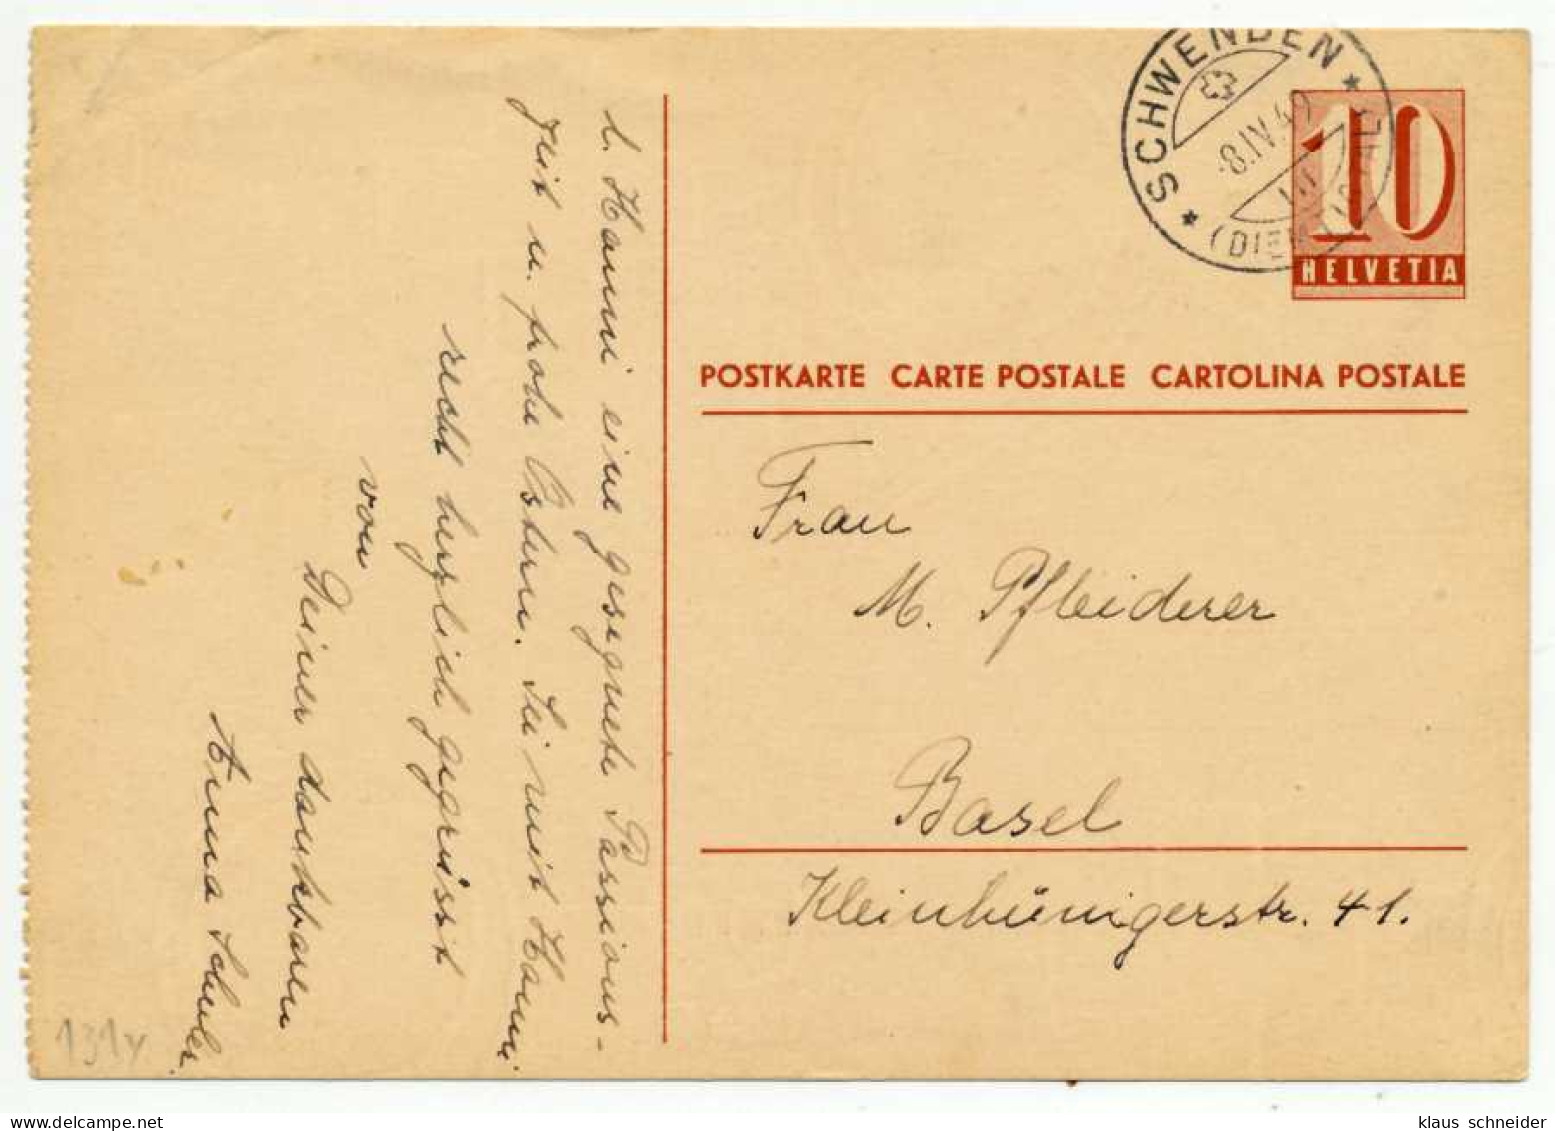 SCHWENDEN
-8.IV.4
(DIEM
10
HELVETIA
POSTKARTE CARTE POSTALE CARTOLINA POSTALE
Frau
M. Pfleiderer
Basel
Kleinhünigerstr. 41.
l. Hanni eine gesegnete Passions-
zeit u. frohe Ostern. Sei mit Hanni
recht herzlich gegrüsst
von
Deiner dankbaren
Anna Schuler.
131y
klaus schneider